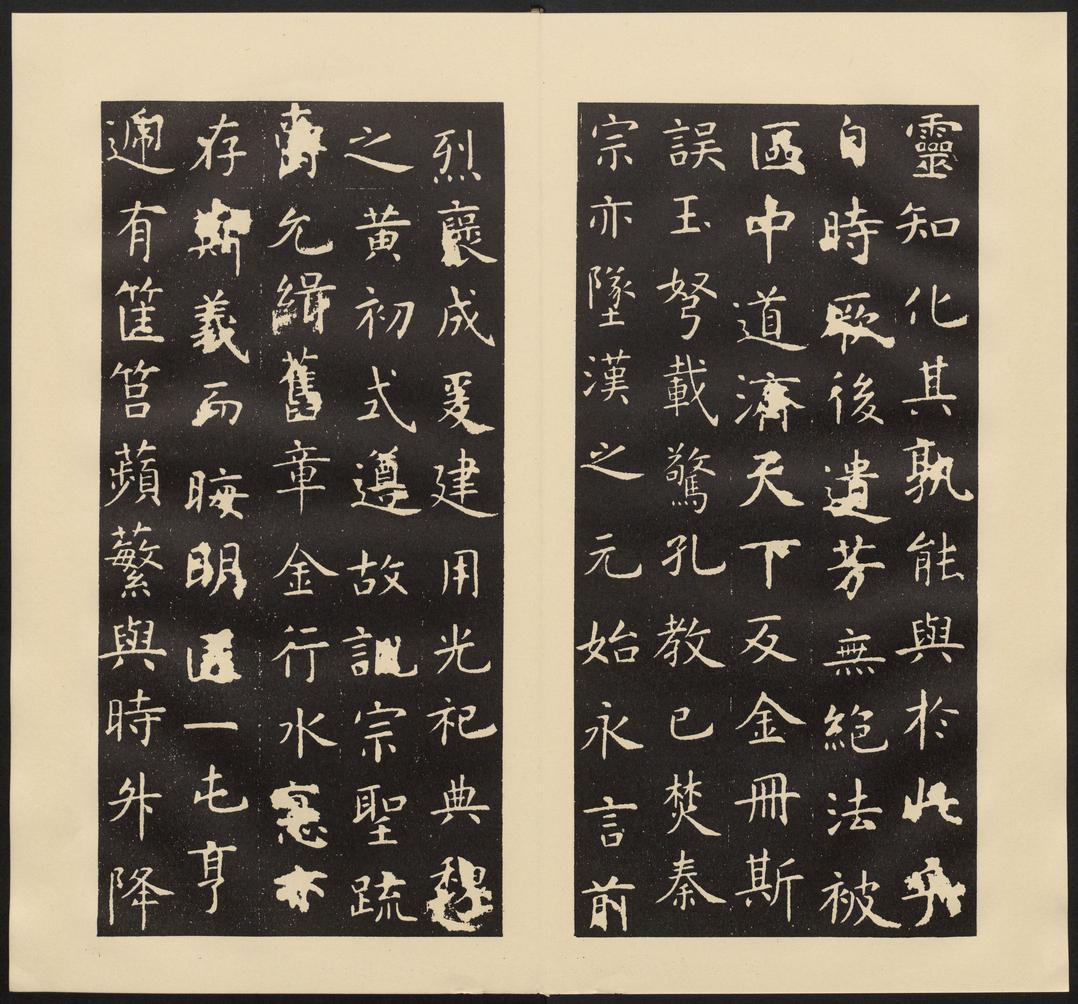 靈知化其孰能與於此乎
自時厥後遺芳無絕法被
區中道濟天下及金冊斯
誤玉弩載驚孔教已焚秦
宗亦墜漢之元始永言前
烈褒成爰建用光祀典魏
之黃初式遵故訓宗聖疏
爵允緝舊章金行水德亦
存斯義而晦明匪一屯亨
遞有筐筥蘋蘩與時升降